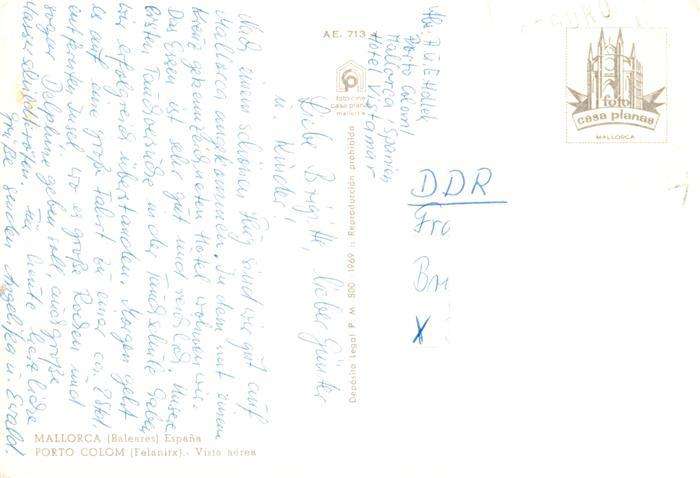 AE. 713
foto cine
casa planas
mallorca
Depósito Legal P. M. 800 1969 :: Reproducción prohibida
foto
casa planas
MALLORCA
MALLORCA (Baleares) España
PORTO COLOM (Felanitx).- Vista aérea
Porto Colom
Mallorca / Spanien
Hotel Vistamar
DDR
Liebe Brigitte, lieber Günter
u. Kinder!
Nach einem schönen Flug sind wir gut auf
Mallorca angekommen. In dem mit einem
Hotel wohnen wir.
Das Essen ist sehr gut und reichlich. Unsere
ersten Tauchversuche in der Tauchschule haben
wir erfolgreich überstanden. Morgen geht
es auf eine große Fahrt zu einer ca. 2 Std.
entfernten Insel, wo es große Rochen und
sogar Delphine geben soll, auch große
Wasserschildkröten. Für heute herzliche
Grüße senden Angelika u. Ewald.